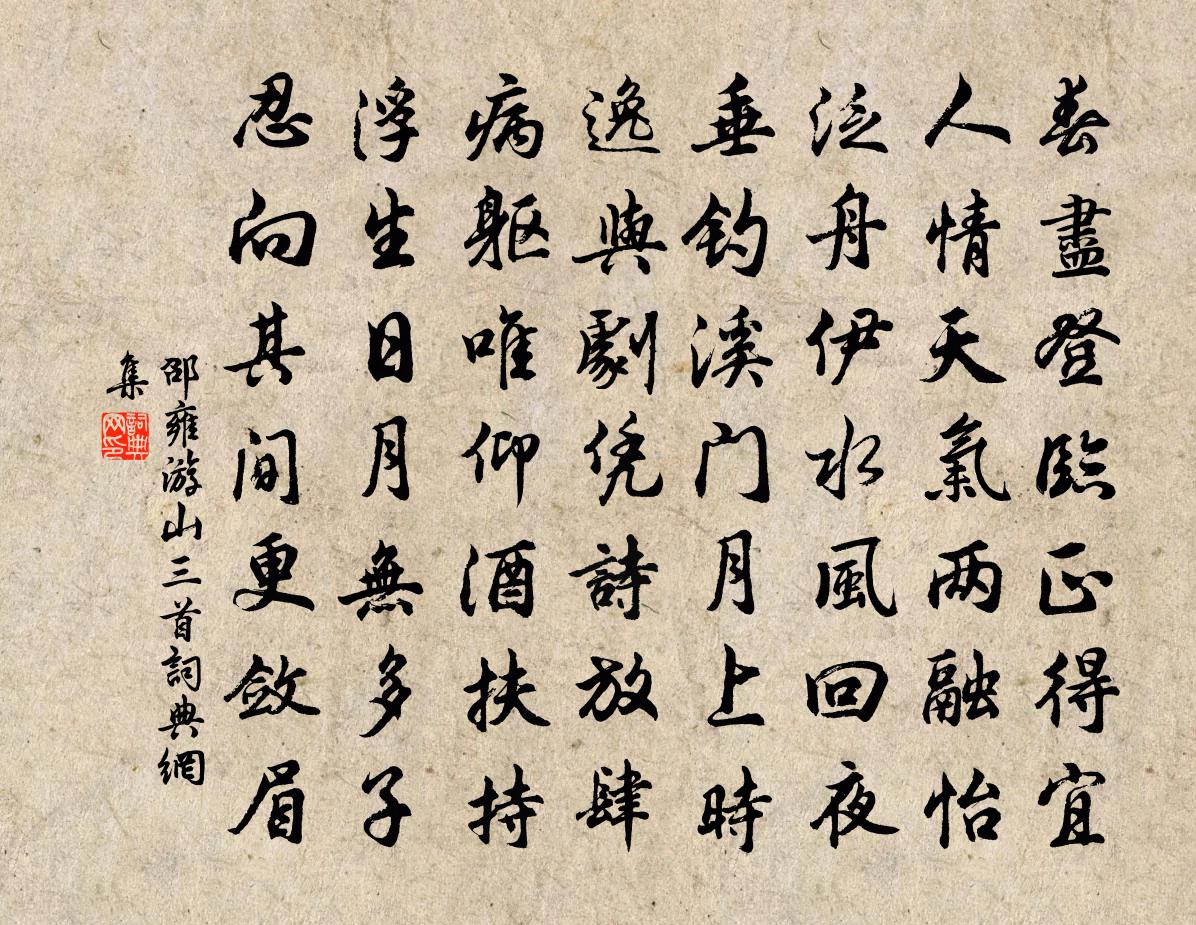 春盡登臨正得宜
人情天氣兩融怡
泛舟伊水風回夜
垂釣溪門月上時
逸興劇凭詩放肆
病軀唯仰酒扶持
浮生日月無多子
忍向其間更斂眉
邵雍游山三首詞典網
集
詞典
网印